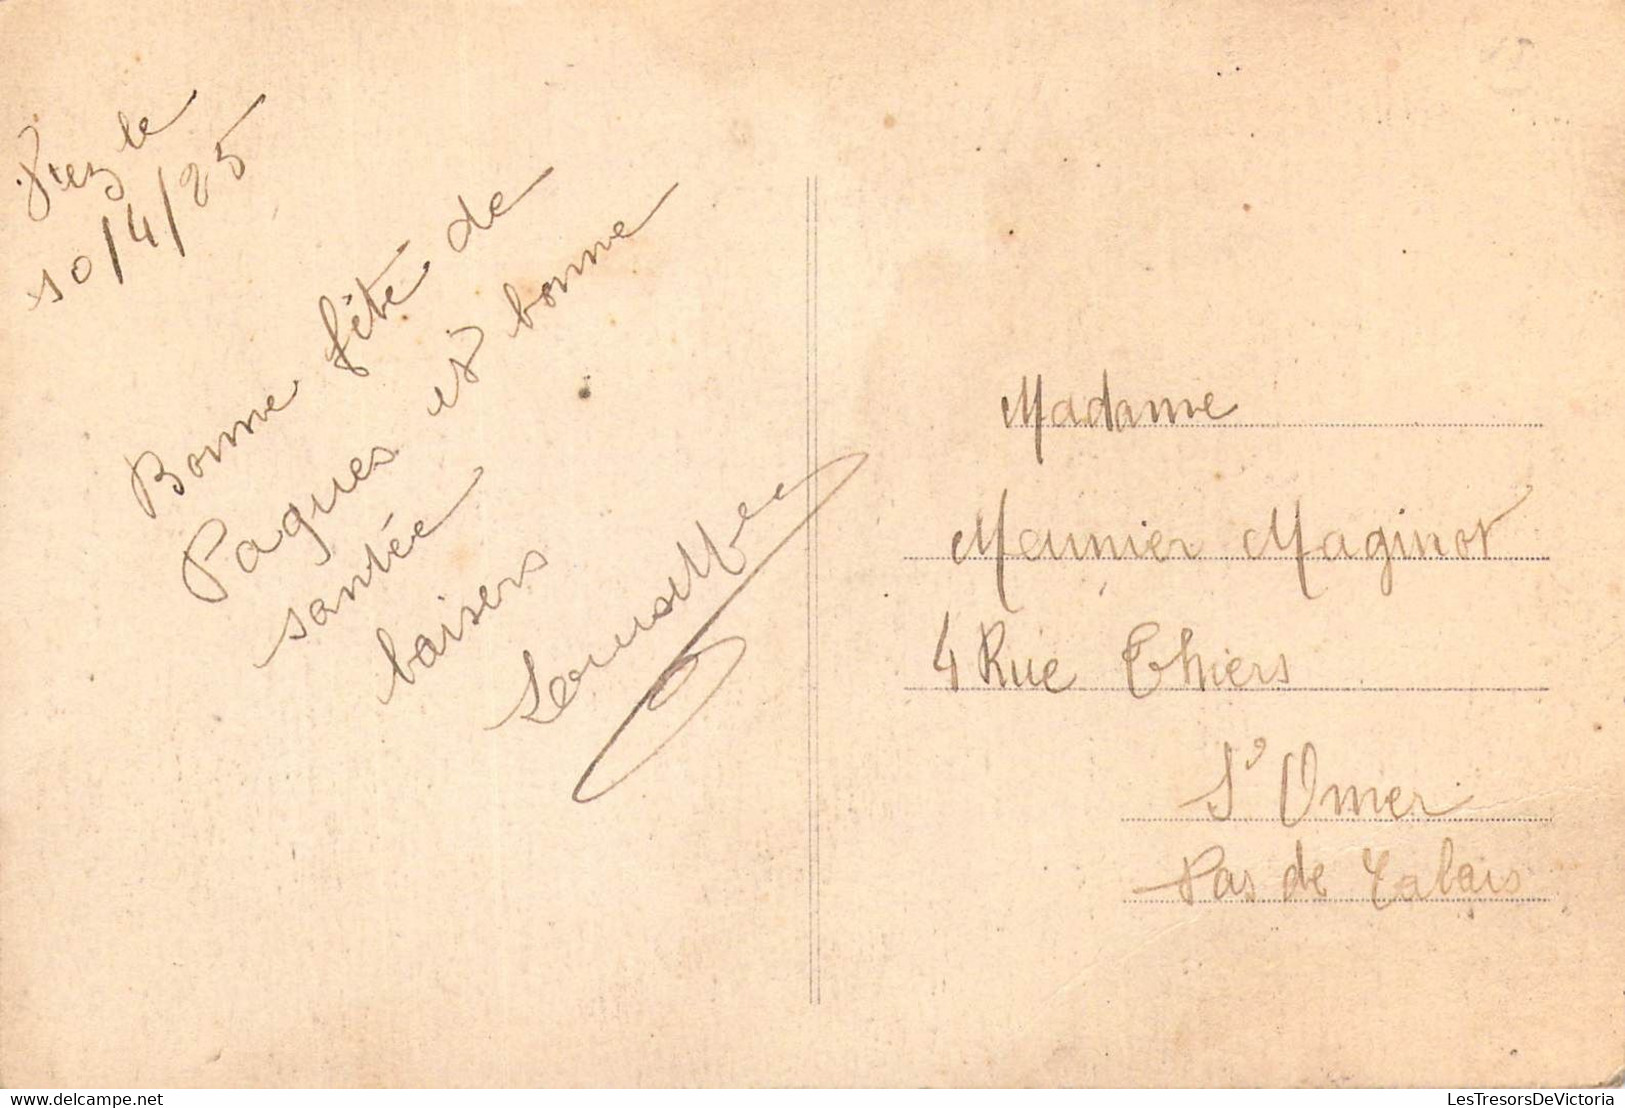 le
10/4/25
Bonne fête de
Paques et bonne
santée
baisers
Madame
Meunier Maginot
4 Rue Thiers
St Omer
Pas de Calais
LesTresorsDeVictoria delcampe.net